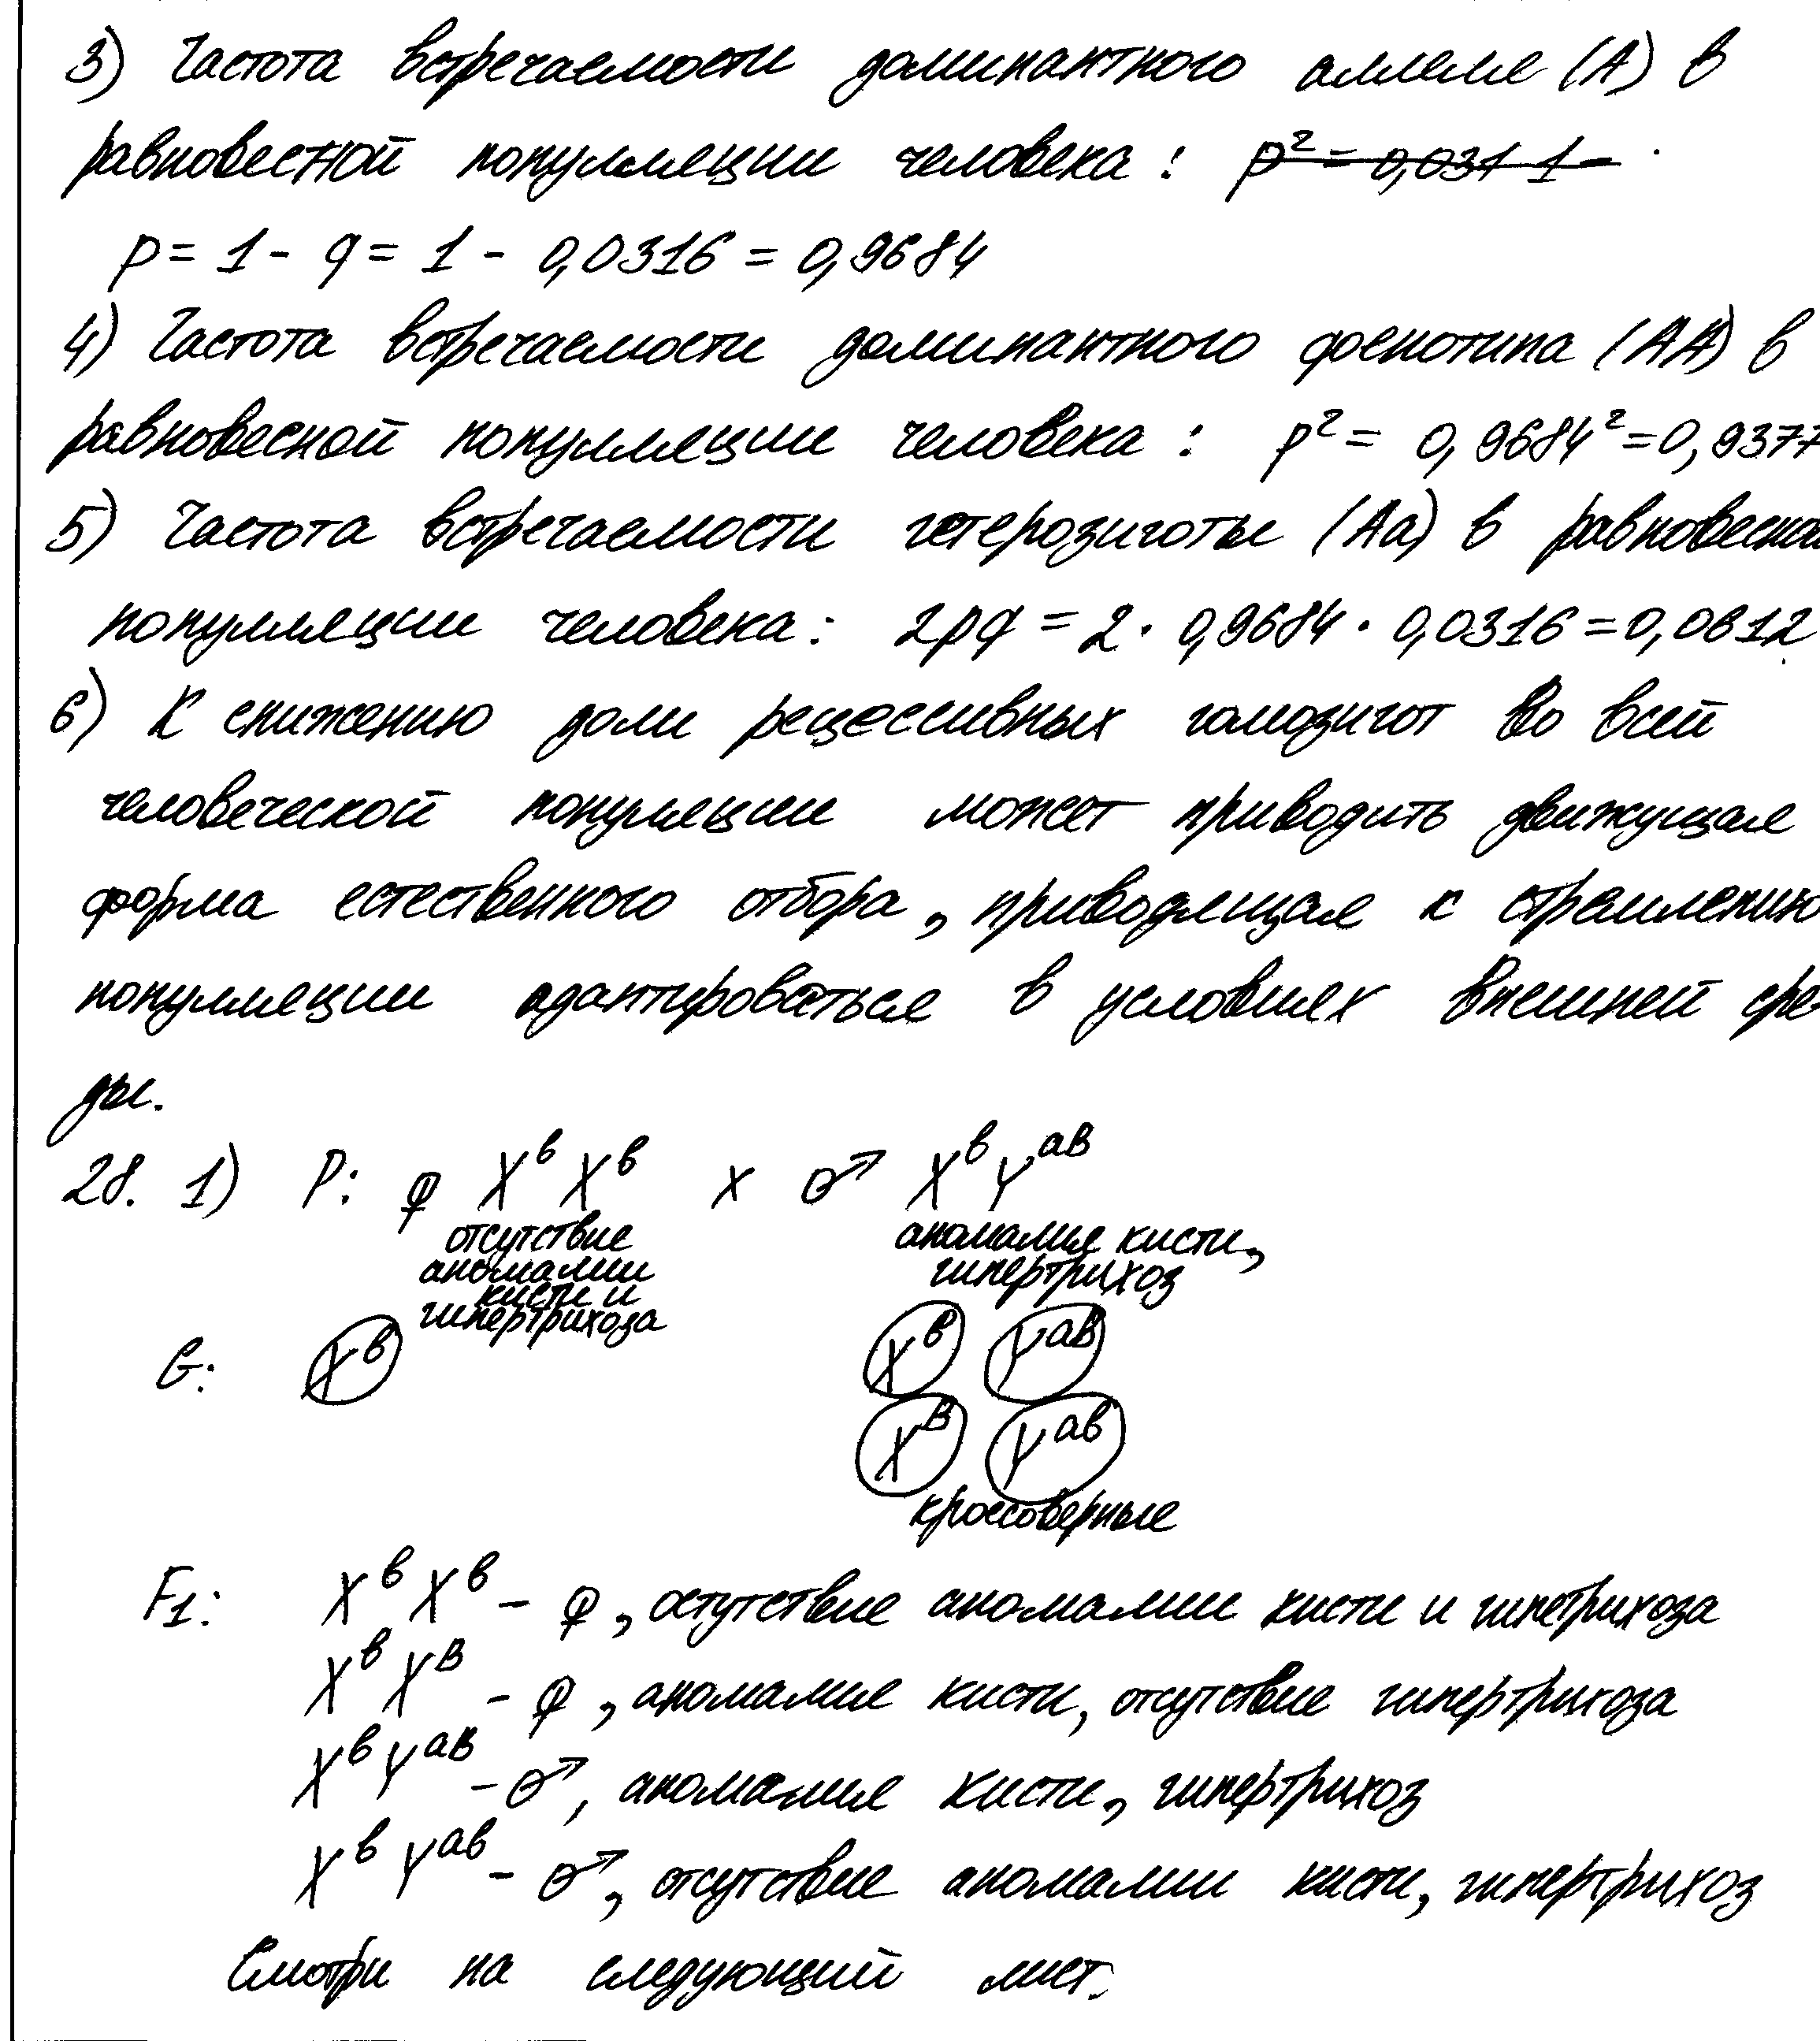 3) Частота встречаемости доминантного аллеля (А) в
равновестной популляции человека : p² = 0,031 1 -
p = 1 - q = 1 - 0,0316 = 0,9684
4) Частота встречаемости доминантного фенотипа (АА) в
равновесной популляции человека : p² = 0,9684² = 0,9377
5) Частота встречаемости гетерозиготы (Аа) в равновесной
популляции человека: 2pq = 2 · 0,9684 · 0,0316 = 0,0612
6) К снижению доли рецессивных гомозигот во всей
человеческой популяции может приводить движущая
форма естественного отбора, приводящая к стремлению
популляции адаптироваться в условиях внешней сре-
ды.
28. 1) P: ♀ XᵇXᵇ x ♂ XᵇYᵃᴮ
отсутствие аномалии кисти,
аномалии гипертрихоз
кисти и
гипертрихоза
G: Xᵇ Xᵇ Yᵃᴮ
Xᴮ Yᵃᵇ
кроссоверные
F1: XᵇXᵇ - ♀, остутствие аномалии кисти и гипетрихоза
XᵇXᴮ - ♀, аномалия кисти, отсутствие гипертрихоза
XᵇYᵃᴮ - ♂, аномалия кисти, гипертрихоз
XᵇYᵃᵇ - ♂, отсутствие аномалии кисти, гипертрихоз
Смотри на следующий лист.